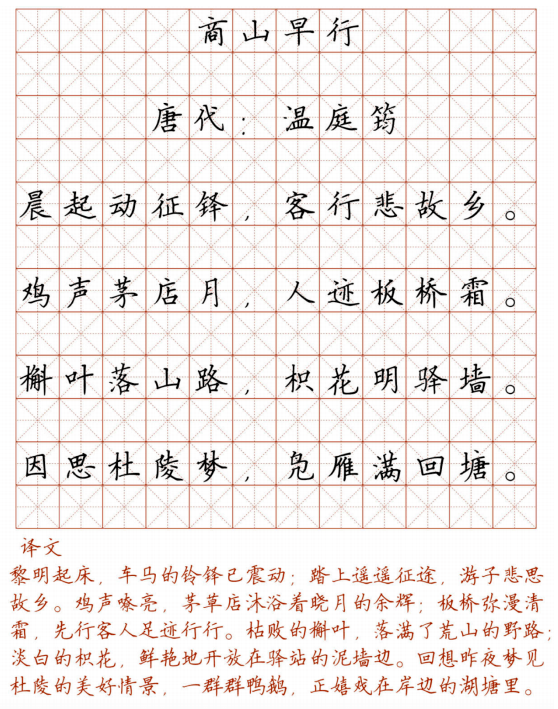 商山早行
唐代：温庭筠
晨起动征铎，客行悲故乡。
鸡声茅店月，人迹板桥霜。
槲叶落山路，枳花明驿墙。
因思杜陵梦，凫雁满回塘。
译文
黎明起床，车马的铃铎已震动；踏上遥遥征途，游子悲思
故乡。鸡声嘹亮，茅草店沐浴着晓月的余辉；板桥弥漫清
霜，先行客人足迹行行。枯败的槲叶，落满了荒山的野路；
淡白的枳花，鲜艳地开放在驿站的泥墙边。回想昨夜梦见
杜陵的美好情景，一群群鸭鹅，正嬉戏在岸边的湖塘里。